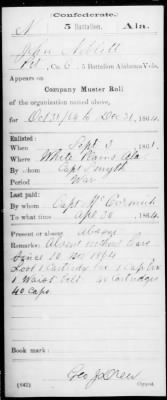 Confederate.
5 Battalion. Ala.
Pvt., Co. C, 5 Battalion Alabama Vols.
Appears on
Company Muster Roll
of the organization named above,
for Oct 31/64 to Dec 31, 1864.
Enlisted:
When Sept 3, 186
Where White Plains Ala
By whom Capt Smyth
Period War
Last paid:
By whom Capt McCormick
To what time Apr 30, 1864.
Present or absent Absent
Remarks: Absent without leave
since 10 Dec 1864
Lost 1 Cartridge box 1 cap box
1 Waist belt 40 Cartridges
40 Caps
Book mark:
(642)
Geo J Drew
Copyist.